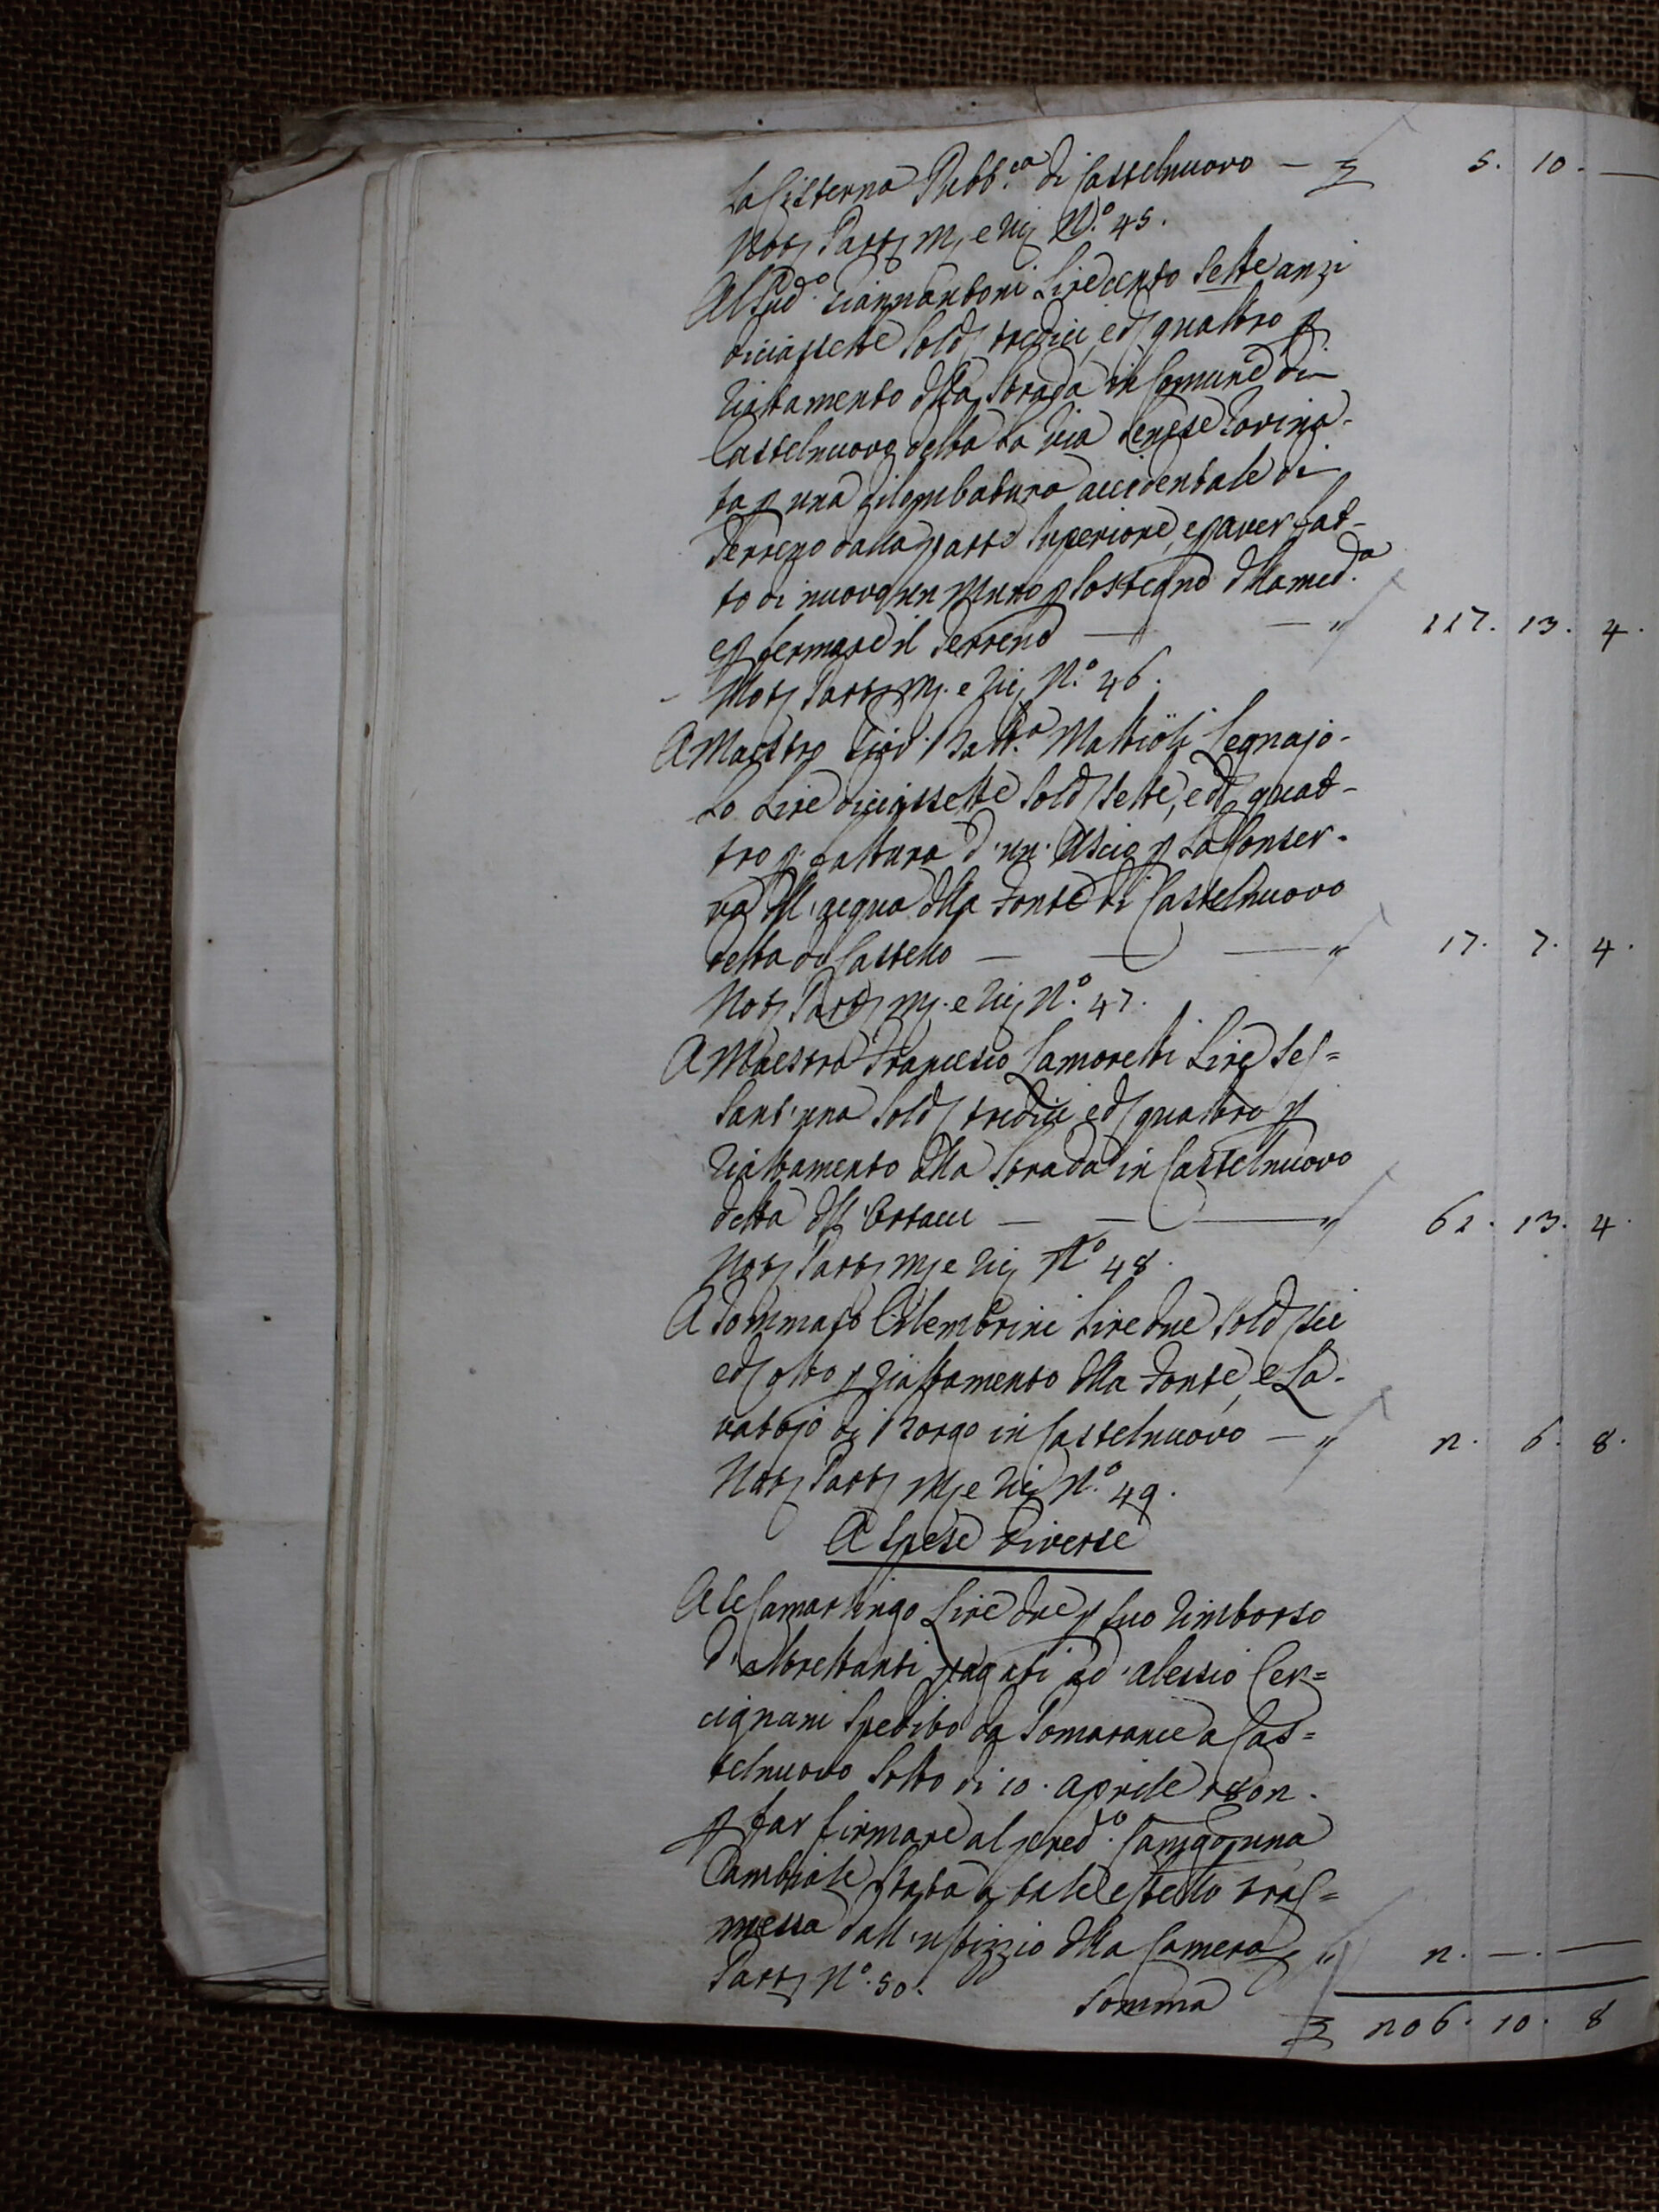 la Cisterna Pubb.ca di Castelnuovo — £ 5. 10. —
Not; Part; M; e Ric; N.° 45.
Al Sud.° Giannantoni Lire cento Sette anzi
diciassette Sold; tredici, e d; quattro p
Riattamento d'lla Strada in Comune di
Castelnuovo detta la Via Senese Rovina-
ta p una dilombatura accidentale di
Terreno dalla parte Superiore, e p aver fat-
to di nuovo un Muro p Sostegno d'lla med.a
e p fermare il Terreno — — " 117. 13. 4.
Not; Part; M; e Ric; N.° 46.
A Maestro Giov: Batt.a Mattioli Legnajo-
lo Lire diciassette Sold; Sette, e d; quat-
tro p fattura d'un' Uscio p la Conser-
va d'll'acqua d'lla Fonte di Castelnuovo
detta di Castello — — — " 17. 7. 4.
Not; Part; M; e Ric; N.° 47.
A Maestro Francesco Lamoretti Lire Ses=
sant'una Sold; tredici e d; quattro p
Riattamento d'lla Strada in Castelnuovo
detta d'll' — — — " 61. 13. 4.
Not; Part; M; e Ric; N° 48.
A Tommaso Lire due Sold; sei
e d; otto p Riattamento d'lla Fonte, e La-
vatojo di Borgo in Castelnuovo — " 2. 6. 8.
Not; Part; M; e Ric; N.° 49.
A Spese Diverse
A le Camarlingo Lire due p suo Rimborso
d'altrettanti pagati ad' Alessio Cer=
cignani Spedito da Pomarance a Cas=
telnuovo Sotto di 10. Aprile 1802.
p far firmare al pred.to Camgo una
Cambiale Stata a tale effetto tras=
messa dall'Uffizzio d'lla Camera " 2. —. —
Part; N.° 50.
Somma £ 206. 10. 8